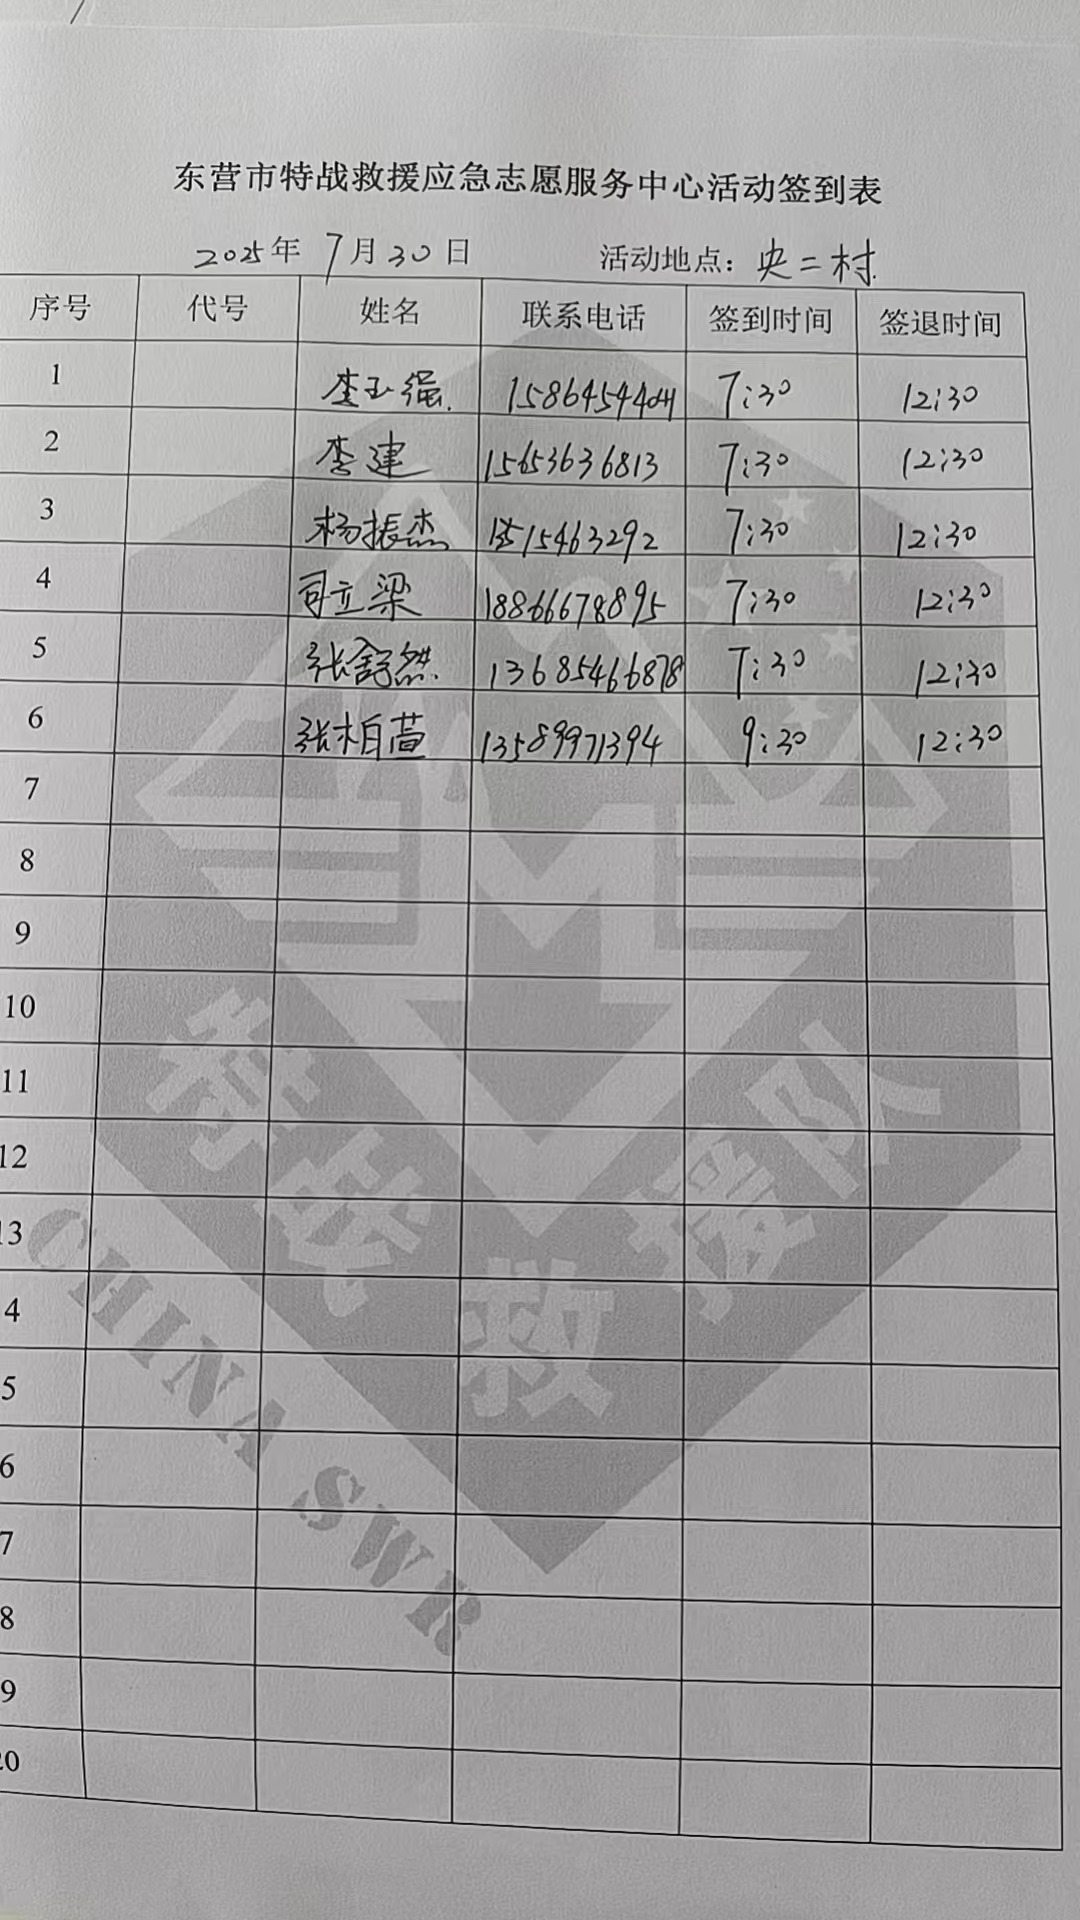 东营市特战救援应急志愿服务中心活动签到表
2025年 7月30日 活动地点：央二村
序号 代号 姓名 联系电话 签到时间 签退时间
1 李玉强 15864544041 7:30 12:30
2 李建 15653636813 7:30 12:30
3 杨振杰 7:30 12:30
4 司立梁 18866678895 7:30 12:30
5 张舒然 13685466878 7:30 12:30
6 张柏萱 13589971394 9:30 12:30
7
8
9
10
11
12
13
4
5
6
7
8
9
20
特战救援队
CHINA SWR